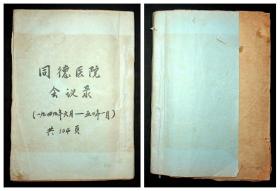 同德医院
会议录
(一九四九年六月——五〇年一月)
共104页